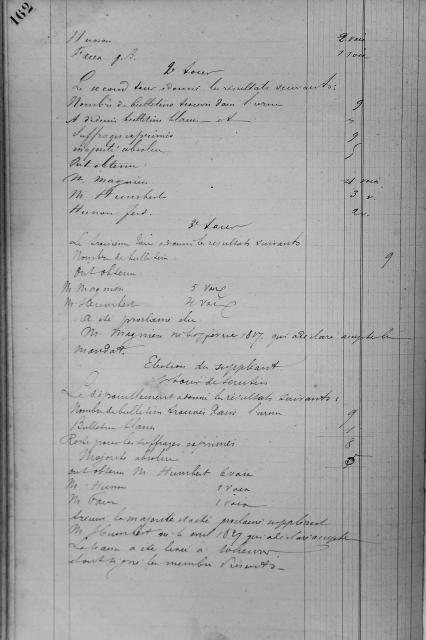 162
Husson 2 voix
Faira J.B. 1 voix
2e tour
Le second tour a donné les résultats suivants:
Nombre de bulletins trouvés dans l'urne 9
A déduire bulletins blancs et "
Suffrages exprimés 9
majorité absolue 5
Ont obtenu
M. Magnien 4 voix
M. Humbert 3 v.
Husson ferd. 2 v.
3e tour
Le troisième tour a donné les résultats suivants
Nombre de bulletin 9
Ont obtenu
M. Magnien 5 voix
M. Humbert 4 voix
A été proclamé élu
M. Magnien né le 07 février qui a déclaré accepter le
mandat.
Election du suppléant
1er tour de scrutin
Le dépouillement a donné les résultats suivants:
Nombre de bulletins trouvés dans l'urne 9
Bulletin blanc 1
Reste pour les suffrages exprimés 8
Majorité absolue 5
ont obtenu M. Humbert 6 voix
M. Husson 1 voix
M. 1 voix
la majorité et a été proclamé suppléant
M. Humbert né le avril qui a déclaré accepter
a été levée
et ont signé les membre présents